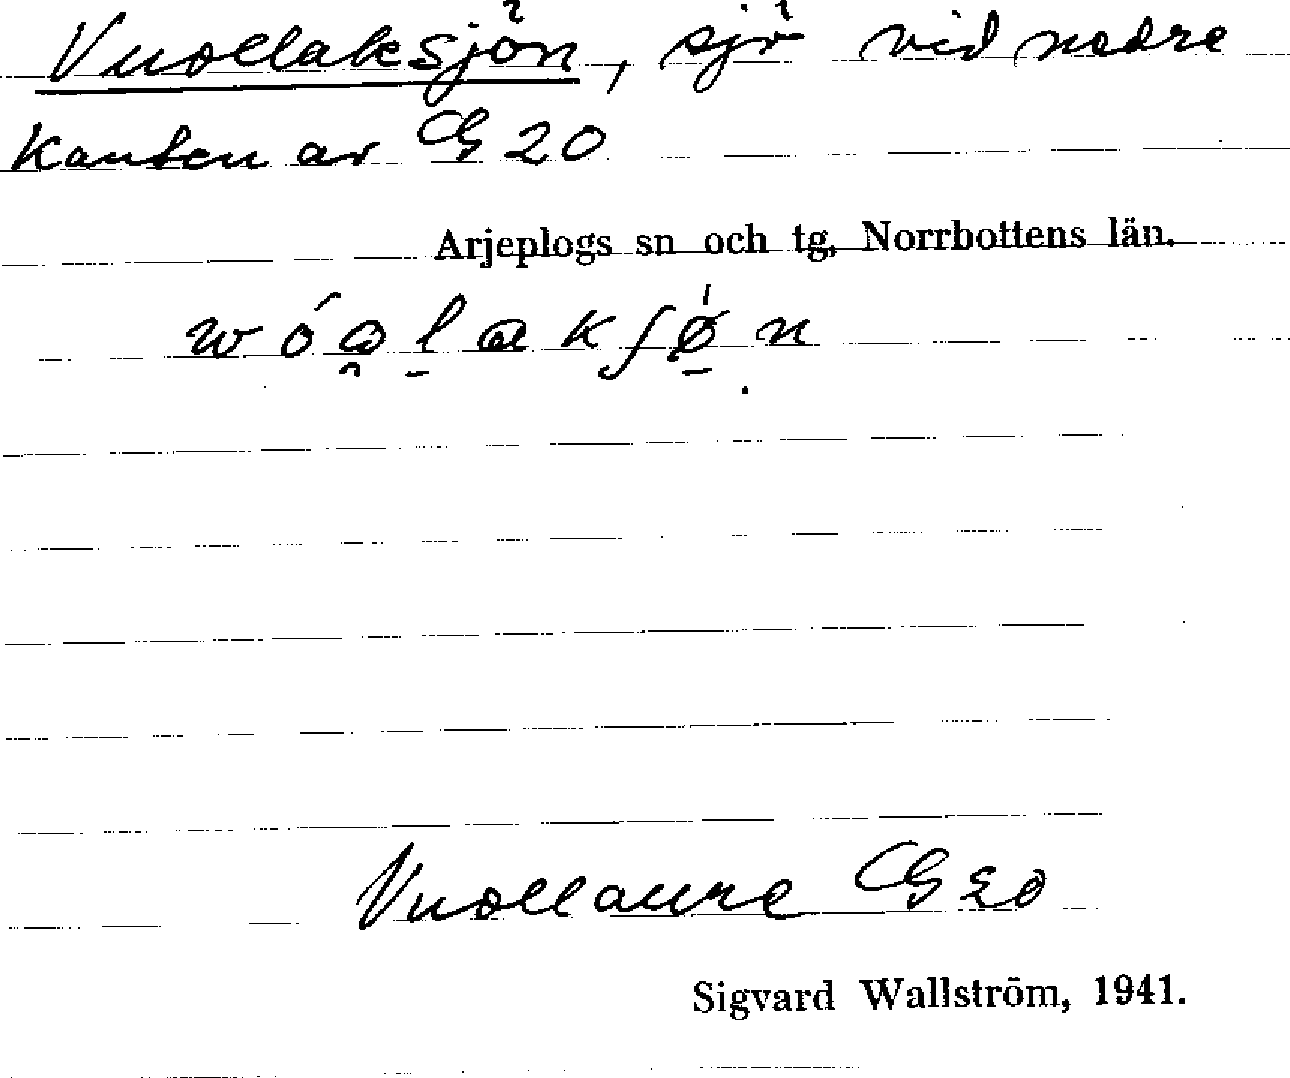 Vuollaksjön, sjö vid nedre
kanten av G 20
Arjeplogs sn och tg, Norrbottens län.
Vuollaure G 20
Sigvard Wallström, 1941.